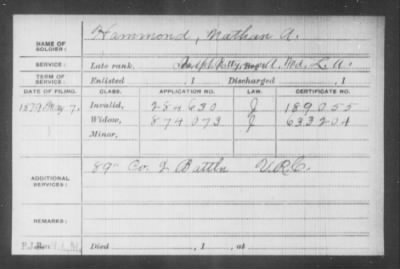 NAME OF SOLDIER: Hammond, Nathan A.
SERVICE: Late rank, Batty A, Md. L. A.
TERM OF SERVICE: Enlisted , 1 Discharged , 1
DATE OF FILING. CLASS. APPLICATION NO. LAW. CERTIFICATE NO.
1879 May 7. Invalid, 284630 J 189055
Widow, 874073 J 633204
Minor,
ADDITIONAL SERVICES: 89" Co. 2 Battln V.R.C.
REMARKS:
Died , 1 , at